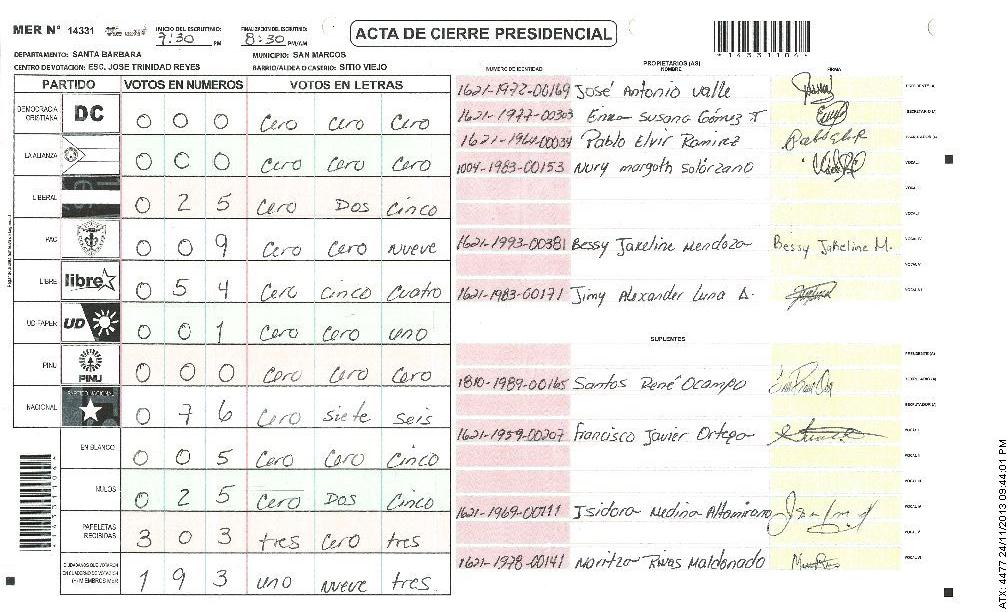 MER N° 14331
INICIO DEL ESCRUTINIO: 9:30 PM
FINALIZACION DEL ESCRUTINIO: 8:30 PM/AM
ACTA DE CIERRE PRESIDENCIAL
DEPARTAMENTO: SANTA BARBARA
MUNICIPIO: SAN MARCOS
CENTRO DE VOTACION: ESC. JOSE TRINIDAD REYES
BARRIO/ALDEA O CASERIO: SITIO VIEJO
PARTIDO VOTOS EN NUMEROS VOTOS EN LETRAS
DEMOCRACIA CRISTIANA DC 0 0 0 Cero Cero Cero
LA ALIANZA 0 0 0 Cero Cero Cero
LIBERAL 0 2 5 Cero Dos Cinco
PAC 0 0 9 Cero Cero Nueve
LIBRE libre 0 5 4 Cero Cinco Cuatro
UD-FAPER UD 0 0 1 Cero Cero uno
PINU PINU 0 0 0 Cero Cero Cero
NACIONAL PARTIDO NACIONAL 0 7 6 Cero Siete seis
EN BLANCO 0 0 5 Cero Cero Cinco
NULOS 0 2 5 Cero Dos Cinco
PAPELETAS RECIBIDAS 3 0 3 tres Cero tres
CIUDADANOS QUE VOTARON EN CUADERNO DE VOTACION (+) MIEMBROS MER 1 9 3 uno Nueve tres
PROPIETARIOS (AS)
NUMERO DE IDENTIDAD NOMBRE FIRMA
1621-1972-00169 José Antonio Valle PRESIDENTE (A)
1621-1977-00303 Erika Susana Gómez T SECRETARIO (A)
1621-1964-00039 Pablo Elvir Ramirez Pablo Elvir R ESCRUTADOR (A)
1004-1983-00153 Nury margoth solórzano VOCAL I
1621-1993-00381 Bessy Jakeline Mendoza Bessy Jakeline M. VOCAL IV
VOCAL V
1621-1983-00171 Jimy Alexander Luna A. VOCAL VI
SUPLENTES
PRESIDENTE (A)
1810-1989-00165 Santos René Ocampo SECRETARIO (A)
ESCRUTADOR (A)
1621-1959-00207 Francisco Javier Ortega VOCAL I
1621-1969-00111 Isidora Medina Altamirano
1621-1978-00141 Maritza Rivas Maldonado VOCAL VI
14331164
ATX: 4477 24/11/2013 09:44:01 PM